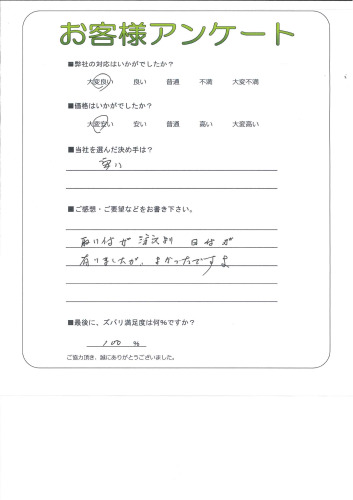 お客様アンケート
■弊社の対応はいかがでしたか？
大変良い 良い 普通 不満 大変不満
■価格はいかがでしたか？
大変安い 安い 普通 高い 大変高い
■当社を選んだ決め手は？
安い
■ご感想・ご要望などをお書き下さい。
取り付が 注文より 日付が
有りましたが、よかったですよ
■最後に、ズバリ満足度は何%ですか？
100 %
ご協力頂き、誠にありがとうございました。